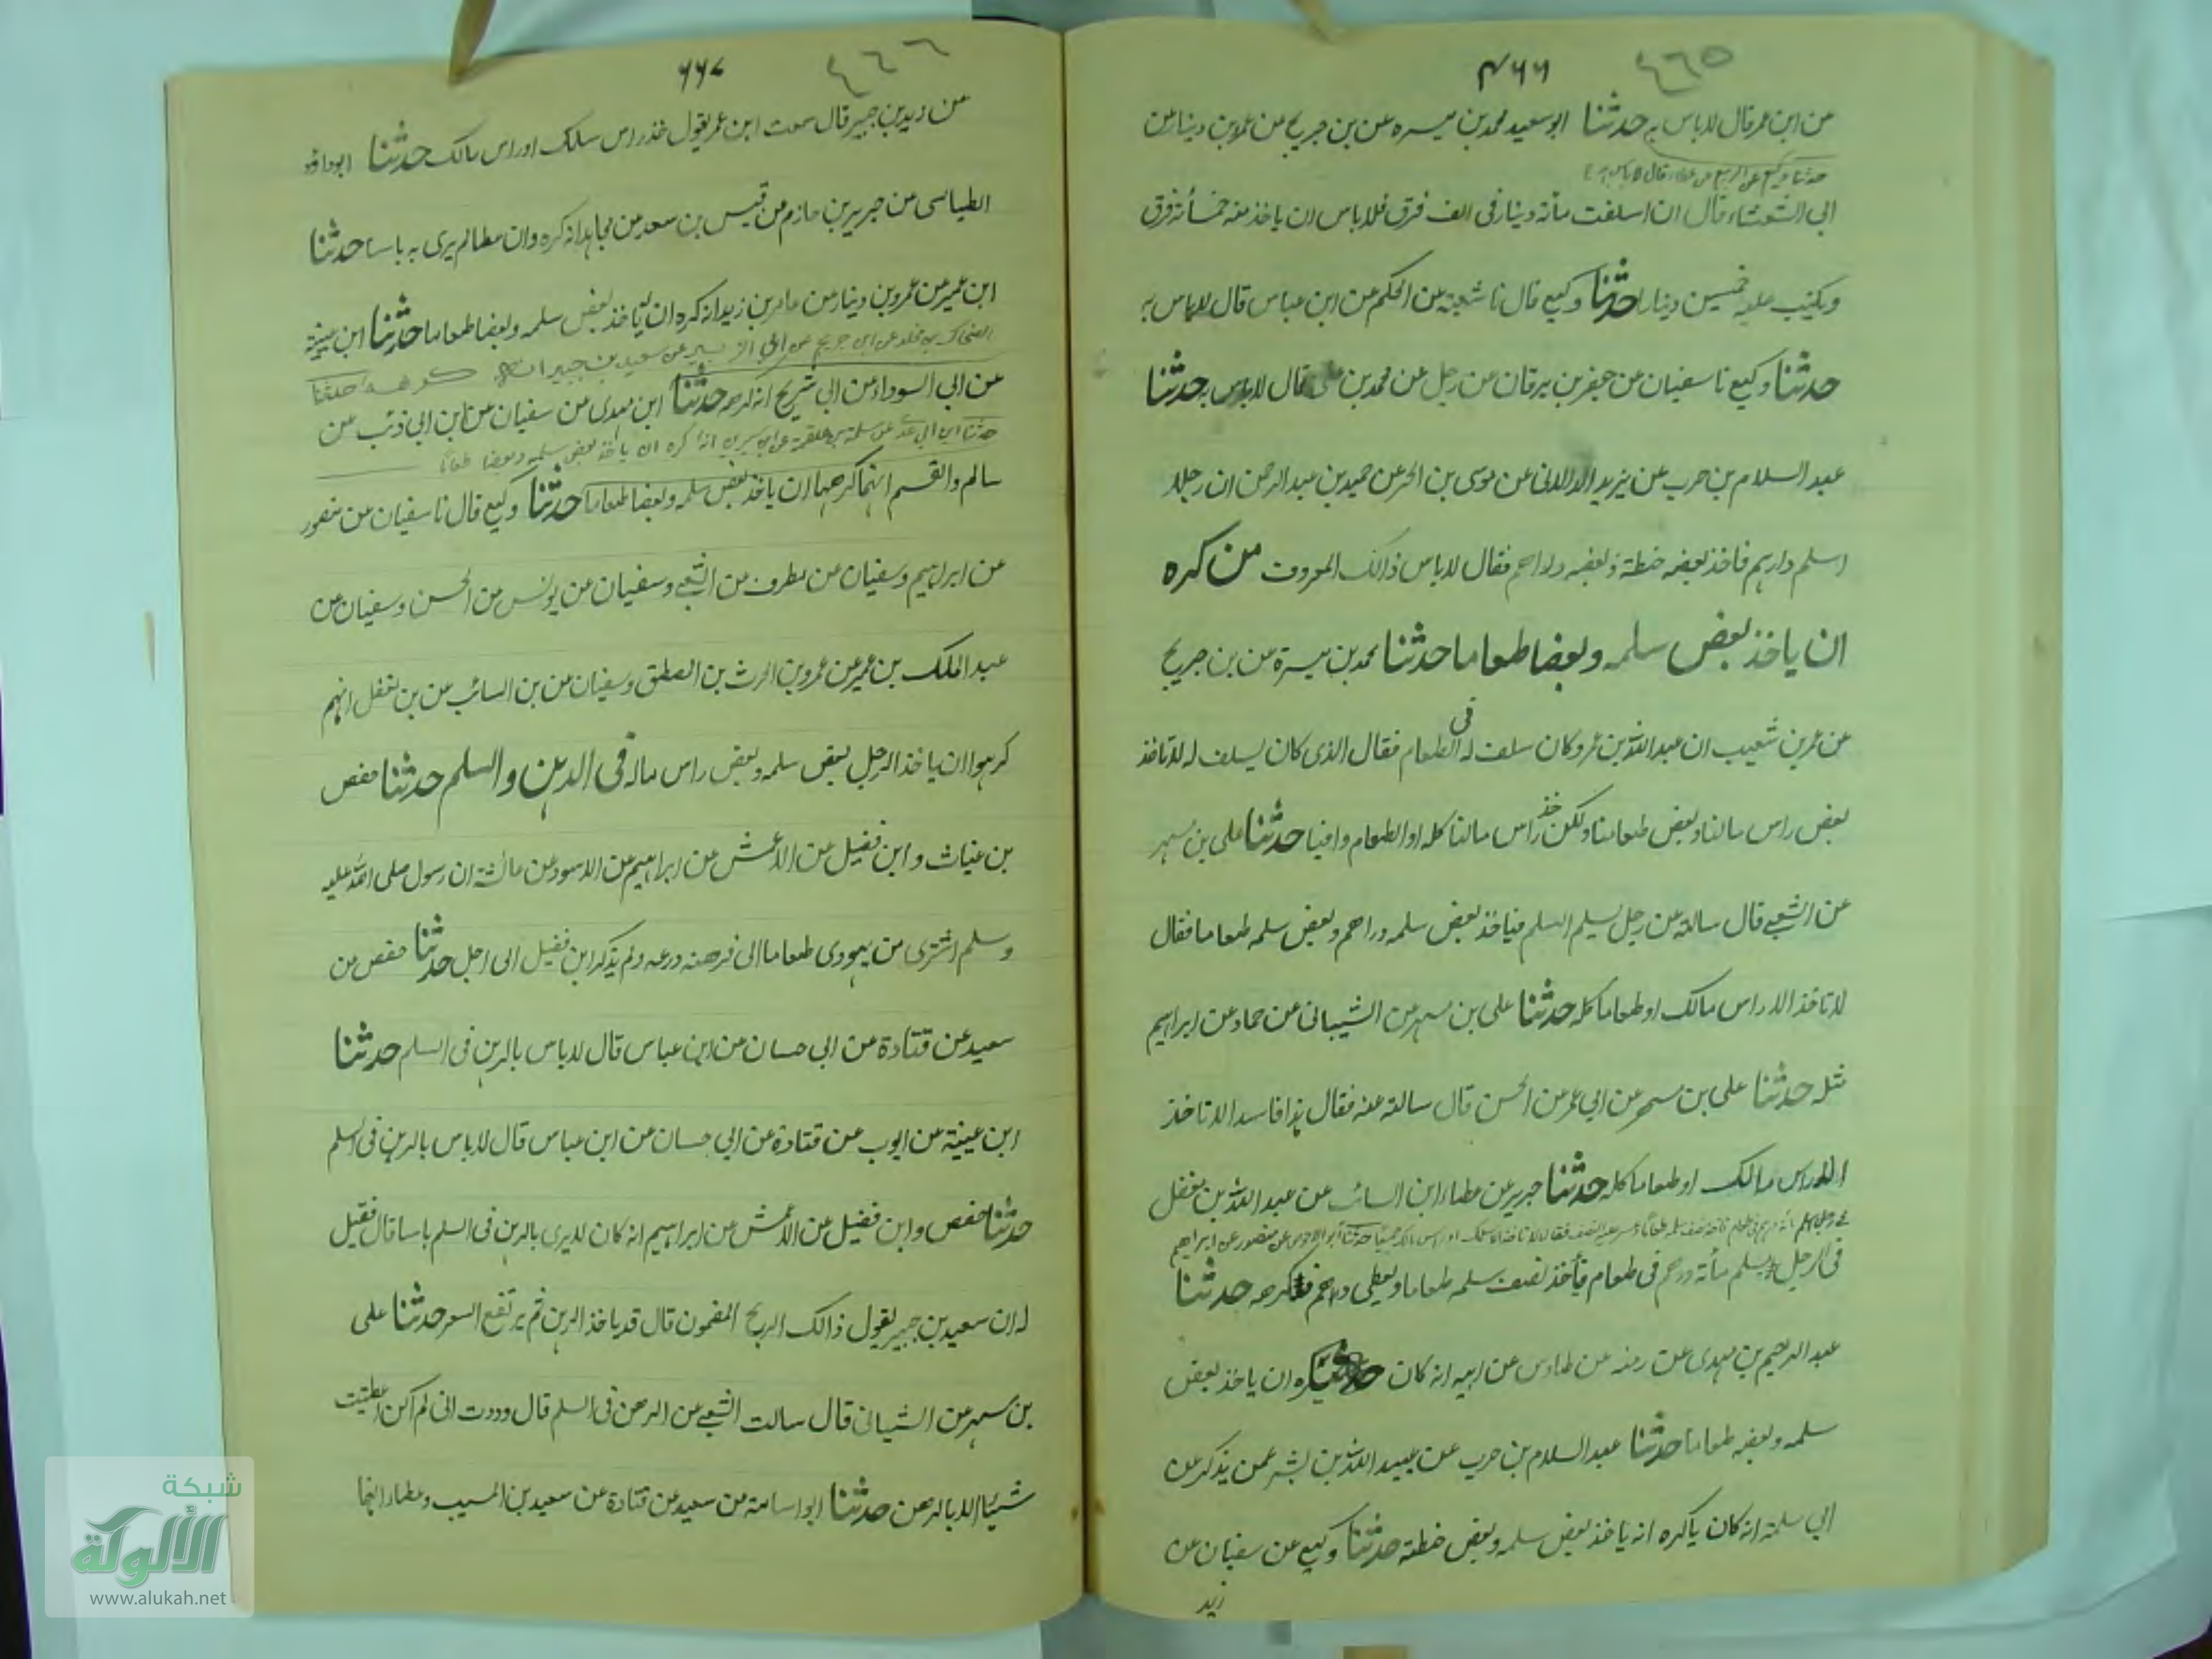 ٤٦٥
٤٦٦
من ابن عمر قال لا باس به حدثنا ابو سعيد محمد بن ميسره عن بن جريج عن عمرو بن دينار عن
حدثنا وكيع عن الربيع عن عطاء قال لا باس به
ابي الشعثاء قال ان اسلفت مأته دينار في الف فرق فلا باس ان ياخذ منه خمسمأته فرق
ويكتب عليه خمسين دينارا حدثنا وكيع قال نا شعبة عن الحكم عن ابن عباس قال لا باس به
حدثنا وكيع نا سفيان عن جعفر بن برقان عن رجل عن محمد بن على قال لا باس به حدثنا
عبد السلام بن حرب عن يزيد الدالانى عن موسى بن الحر عن حميد بن عبد الرحمن ان رجلا
اسلم دارہم فاخذ بعضه حنطة وبعضه دراهم فقال لا باس ذالك المعروف من كره
ان ياخذ بعض سلمه وبعضا طعاما حدثنا محمد بن ميسرة عن بن جريج
عن عمر بن شعيب ان عبد الله بن عمرو كان سلف له في الطعام فقال الذى كان يسلف له لا تاخذ
بعض راس مالنا وبعض طعامنا ولكن خذ راس مالنا كله او الطعام وافيا حدثنا على بن مسهر
عن الشعبے قال سالته عن رجل يسلم السلم فياخذ بعض سلمه دراهم وبعض سلمه طعاما فقال
لا تاخذ الا راس مالك او طعاما كله حدثنا على بن مسهر عن الشيبانى عن حماد عن ابراہيم
مثله حدثنا على بن مسهر عن ابي عمر عن الحسن قال سالته عنه فقال ہذا فاسد الا تاخذ
الا راس مالك او طعاما كله حدثنا جرير عن عطاء ابن السائب عن عبد الله بن مغفل
حدثنا ابو الاحوص عن منصور عن ابراهيم
فى الرجل يسلم مأته درهم فى طعام فأخذ نصف سلمه طعاما ويعطى دراهم فكرهه حدثنا
عبد الرحيم بن مهدى عن زمعه عن طاوس عن ابيه انه كان يكره ان ياخذ بعض
سلمه وبعضه طعاما حدثنا عبد السلام بن حرب عن عبيد الله بن بشر عمن يذكر عن
ابي سلمة انه كان يأكره انه ياخذ بعض سلمه وبعض حنطة حدثنا وكيع عن سفيان عن
زيد
٤٦٦
٦٦٧
من زيد بن جبير قال سمعت ابن عمر يقول خذ راس سلمك او راس مالك حدثنا ابو داؤد
الطيالسى من جرير بن حازم من قيس بن سعد من مجاہد انه كره وان عطا لم يرى به باسا حدثنا
ابن عمير من عمرو بن دينار من عامر بن زيد انه كره ان ئاخذ بعض سلمه وبعضا طعاما حدثنا ابن عيينة
الضحاك بن مخلد عن ابن جريج عن ابي الزبير عن سعيد بن جبير انه كرهه حدثنا
عن ابي السوداء عن ابي شريح انه كرهه حدثنا ابن مهدى عن سفيان عن ابن ابي ذئب عن
حدثنا ابن ابي عدى عن سلمة بن علقمة عن ابن سيرين انه كره ان ياخذ بعض سلمه وبعضا طعاما
سالم والقسم انہما كرهها ان ياخذ بعض سلمه وبعضا طعاما حدثنا وكيع قال نا سفيان عن منصور
عن ابراہيم وسفيان عن مطرف من الشعبے وسفيان عن يونس من الحسن وسفيان عن
عبد الملك بن عمير عن عمرو بن الحرث بن المصطلق وسفيان عن بن السائب عن بن مغفل انہم
كرہوا ان ياخذ الرجل بعض سلمه وبعض راس ماله فى الدين والسلم حدثنا حفص
بن غياث و ابن فضيل عن الاعمش عن ابراہيم عن الاسود عن عائشة ان رسول صلى الله عليه
وسلم اشترى من يہودى طعاما الى فرهنه درعه ولم يذكر ابن فضيل الى اجل حدثنا حفص من
سعيد عن قتادة عن ابي حسان من ابن عباس قال لا باس بالرہن فى السلم حدثنا
ابن عيينة عن ايوب عن قتادة عن ابي حسان عن ابن عباس قال لا باس بالرہن فى السلم
حدثنا حفص و ابن فضيل عن الاعمش عن ابراہيم انه كان لا يرى بالرہن فى السلم باسا قال فقيل
له ان سعيد بن جبير يقول ذالك الربح المضمون قال قد ياخذ الرہن ثم يرتفع السعر حدثنا على
بن مسہر عن الشيبانى قال سالت الشعبے عن الرهن فى السلم قال وددت انى لم اكن اعطيت
شيئا الا بالرهن حدثنا ابو اسامة من سعيد عن قتادة عن سعيد بن المسيب وعطاء انہما
شبكة
الألوكة
www.alukah.net